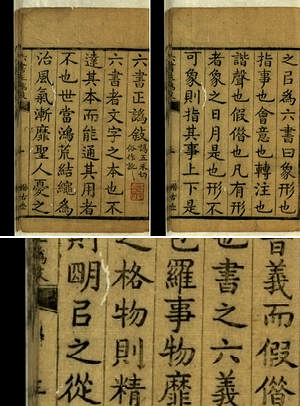 六書正譌敘
譌五禾切
俗作訛
六書者文字之本也不
達其本而能通其用者
不也世當鴻荒結繩為
治風氣漸靡聖人憂之
之㠯為六書曰象形也
指事也會意也轉注也
諧聲也假借也凡有形
者象之日月是也形不
可象則指其事上下是
義而假借
也書之六義
也羅事物靡
之格物則精
則明㠯之從